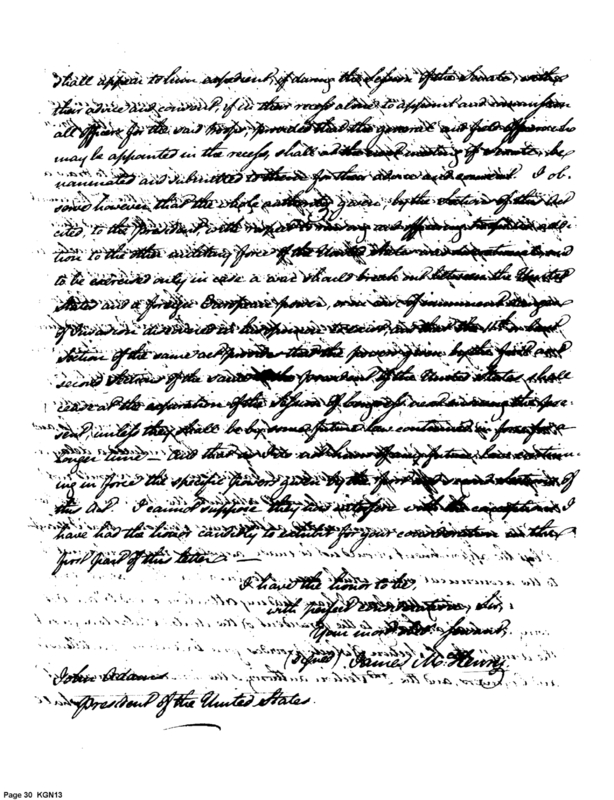 shall appear to him expedient, if during the Session of the Senate, with
their advice and consent, if in their recess alone to appoint and commission
all officers for the said troops, provided that the general and field officers who
may be appointed in the recess, shall at the next meeting of Senate, be
nominated and submitted to them for their advice and consent. I ob
serve however that the whole authority given by the Section of this Act
cited, to the President with respect to and officering troops in addi
tion to the other military force of the United States and
to be exercised only in case a war should break out between the United
States and a foreign European power, or in case of imminent danger
of Invasion discovered to exist, and that the 11th
Section of the same act provides that the powers given by the first and
second Sections of the same to the President of the United States, shall
cease at the expiration of the Session of Congress next ensuing the pre
sent, unless they shall be by some future law continued in force for a
longer time — And that as I do not know of any future Law continu
ing in force the specific powers given by the first and second Sections of
this Act. I cannot suppose they now with the exceptions I
have had the honor candidly to exhibit for your consideration in the
first part of this letter —
I have the honor to be,
with perfect Sir,
Your most Obt. Servant,
(Signed) James McHenry
John Adams
President of the United States.
Page 30 KGN13